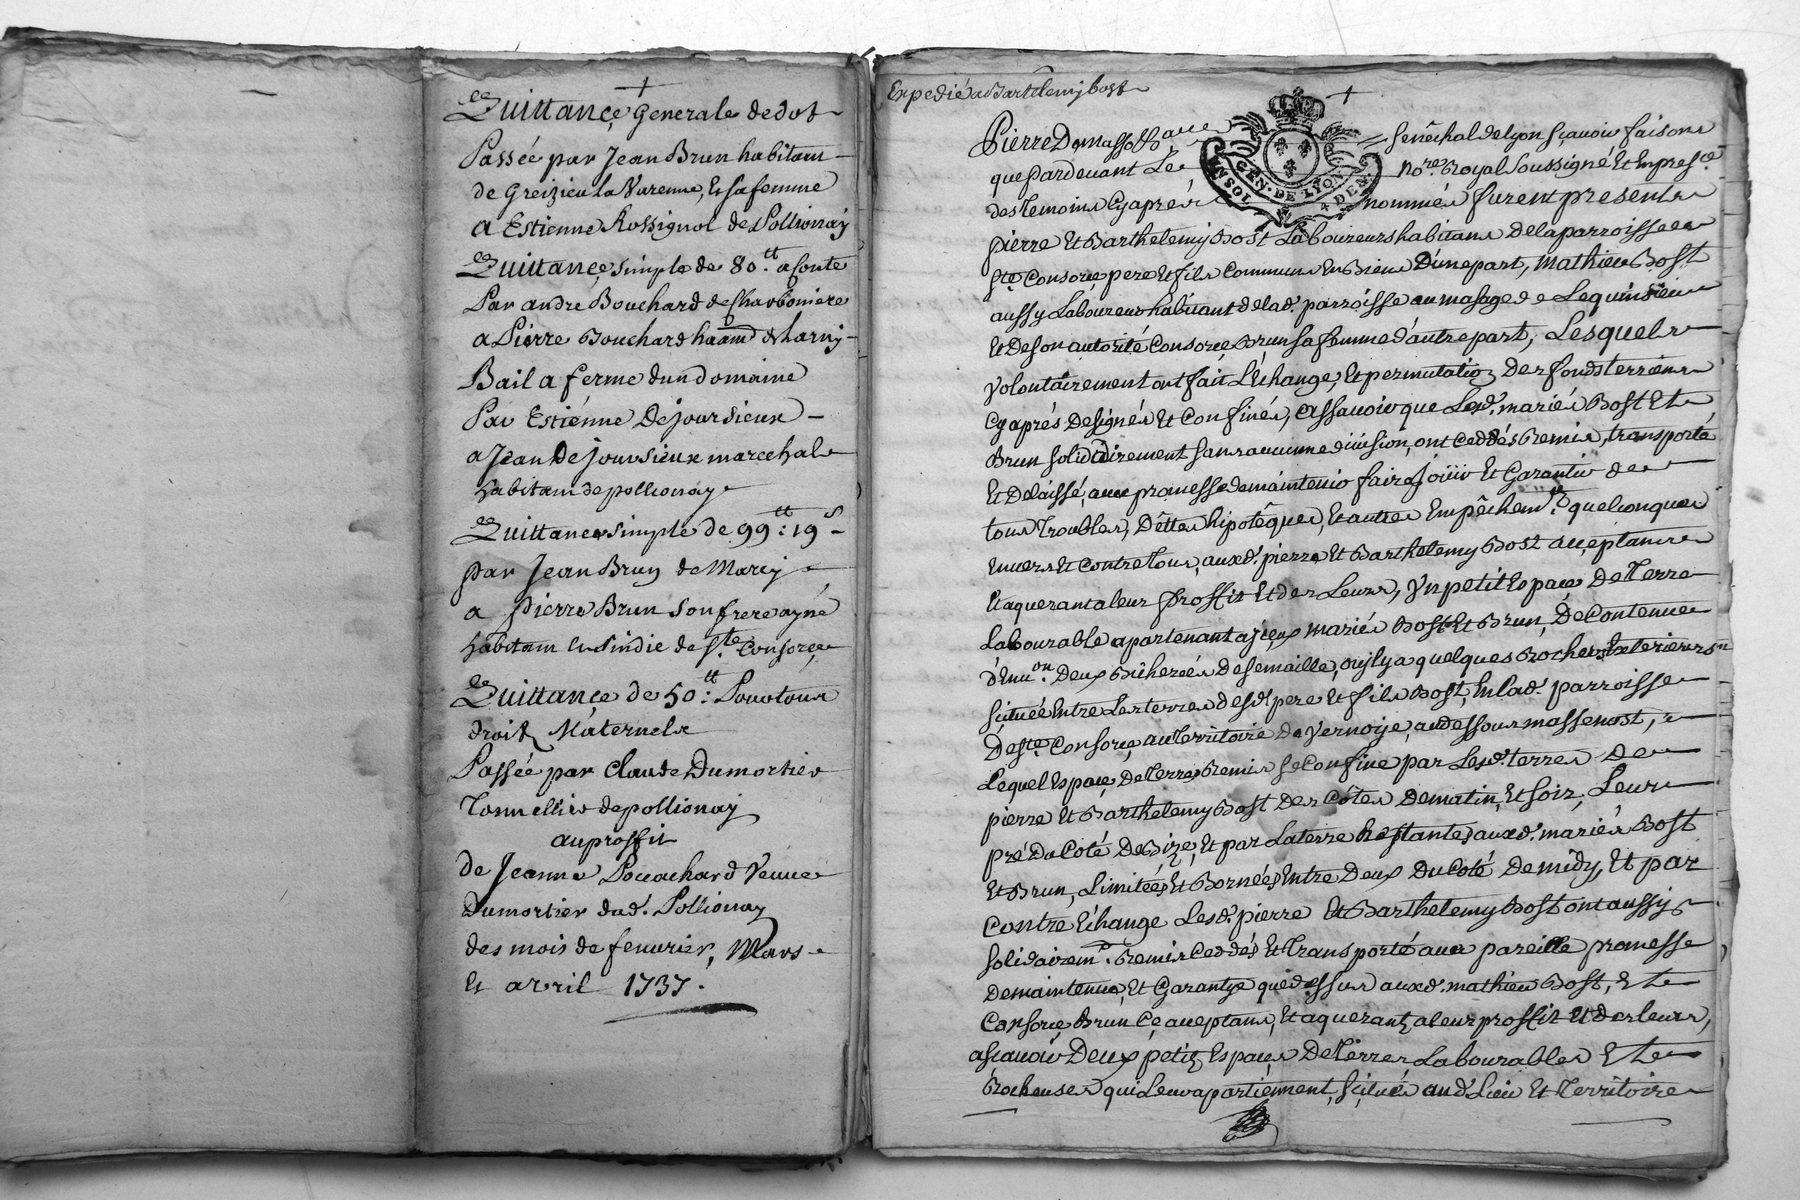 +
Quittançe Generale de dot
Passée par Jean Brun habitam
de Greizieu la Varenne, Et sa femme
a Estienne Rossignol de Pollionnay
Quittançe simple de 80.tt a Conte
Par andré Bouchard de Charboniere
a Pierre Bouchard
Bail a ferme dun domaine
Par Estiénne Dejoursieux
a Jean De joursieux marechal
habitam de pollionay
Quittance simple de 99tt: 19s
par Jean Brun de Marcy
a pierre Brun son frere ayné
habitam de Ste. Consorçe
Quittançe de 50:tt Pour tous
droits Maternels
Passée par Claude Dumortier
Tonnellier de pollionay
au proffit
de Jeanne Bouchard Veuve
Dumortier dud. Pollionay
des mois de fevrier, Mars
Et avril 1737.
Expedié a Bartelemy bost
+
Pierre De masso
Senêchal de Lyon sçavoir faisons
GEN. DE LYON
UN SOL 4 DEN.
que Pardevant Le
Nore. Royal Soussigné Et En presce.
des Temoins Cy aprés
nommés furent presents
pierre Et Barthelemy Bost Laboureurs habitans de la parroisse
Ste Consorçe, pere Et fils Communs En Biens D'une part, Mathieu Bost
aussy Laboureur habitant de lad. parroisse au masage de Lequinsieu
Et De son autorité Consorçe Brun sa femme d'autre part, Lesquels
Volontairement ont fait L'Echange, Et permutation Des fonds terriens
Cy aprés Designés Et Confinés, Assavoir que Lesd. mariés Bost Et
Brun solidairement sans aucunne division, ont Ceddés Remis, transporté
Et Delaissé, avec promesse de maintenir faire Joüir Et Garantir de
tous Troubles, Dêttes hipotêques, Et autres Empêchemts. quelconques
Envers Et Contre Tous, auxd. pierre Et Barthelemy Bost acceptants
Et aquerant a leur proffit Et des Leurs, Un petit Espace De Terre
Labourable apartenant a jceux mariés Bost Et Brun, De Contenue
d'Envon. Deux Bicherées De semaille, ou jl y a quelques Rochers
scituée Entre Les terres desd. pere Et fils Bost, En lad. parroisse
De Ste. Consorçe, au Territoire De Vernoye, au dessous massenost,
Lequel Espace De Terre Remis se Confine par Lesd. terres De
pierre Et Barthelemy Bost Des Côtés De matin, Et soir, Leur
pré Du Coté De Bize, Et par La terre Restante auxd. mariés Bost
Et Brun, Limitées Et Bornées Entre Deux Du Coté De midy, Et par
Contre Echange Lesd. pierre Et Barthelemy Bost ont aussy
solidairemt. Remis Ceddés Et Transporté avec pareille promesse
De maintenir, Et Garantye que dessus auxd. mathieu Bost, Et
Consorçe Brun Ce acceptans, Et aquerants a leur proffit Et des leurs,
ascavoir Deux petits Espaces De Terres Labourables Et
Rocheuses qui Leur apartiennent, scitués aud. Lieu Et Territoire